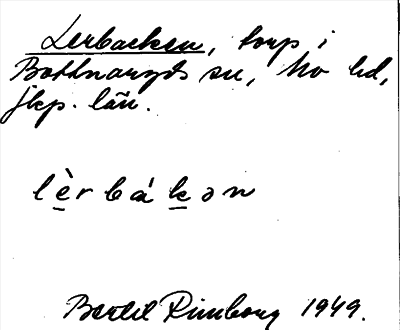 Lerbacken, torp i
Bottnaryds sn, Mo hd,
Jkp. län.
lèrbákən
Bertil Rimborg 1949.